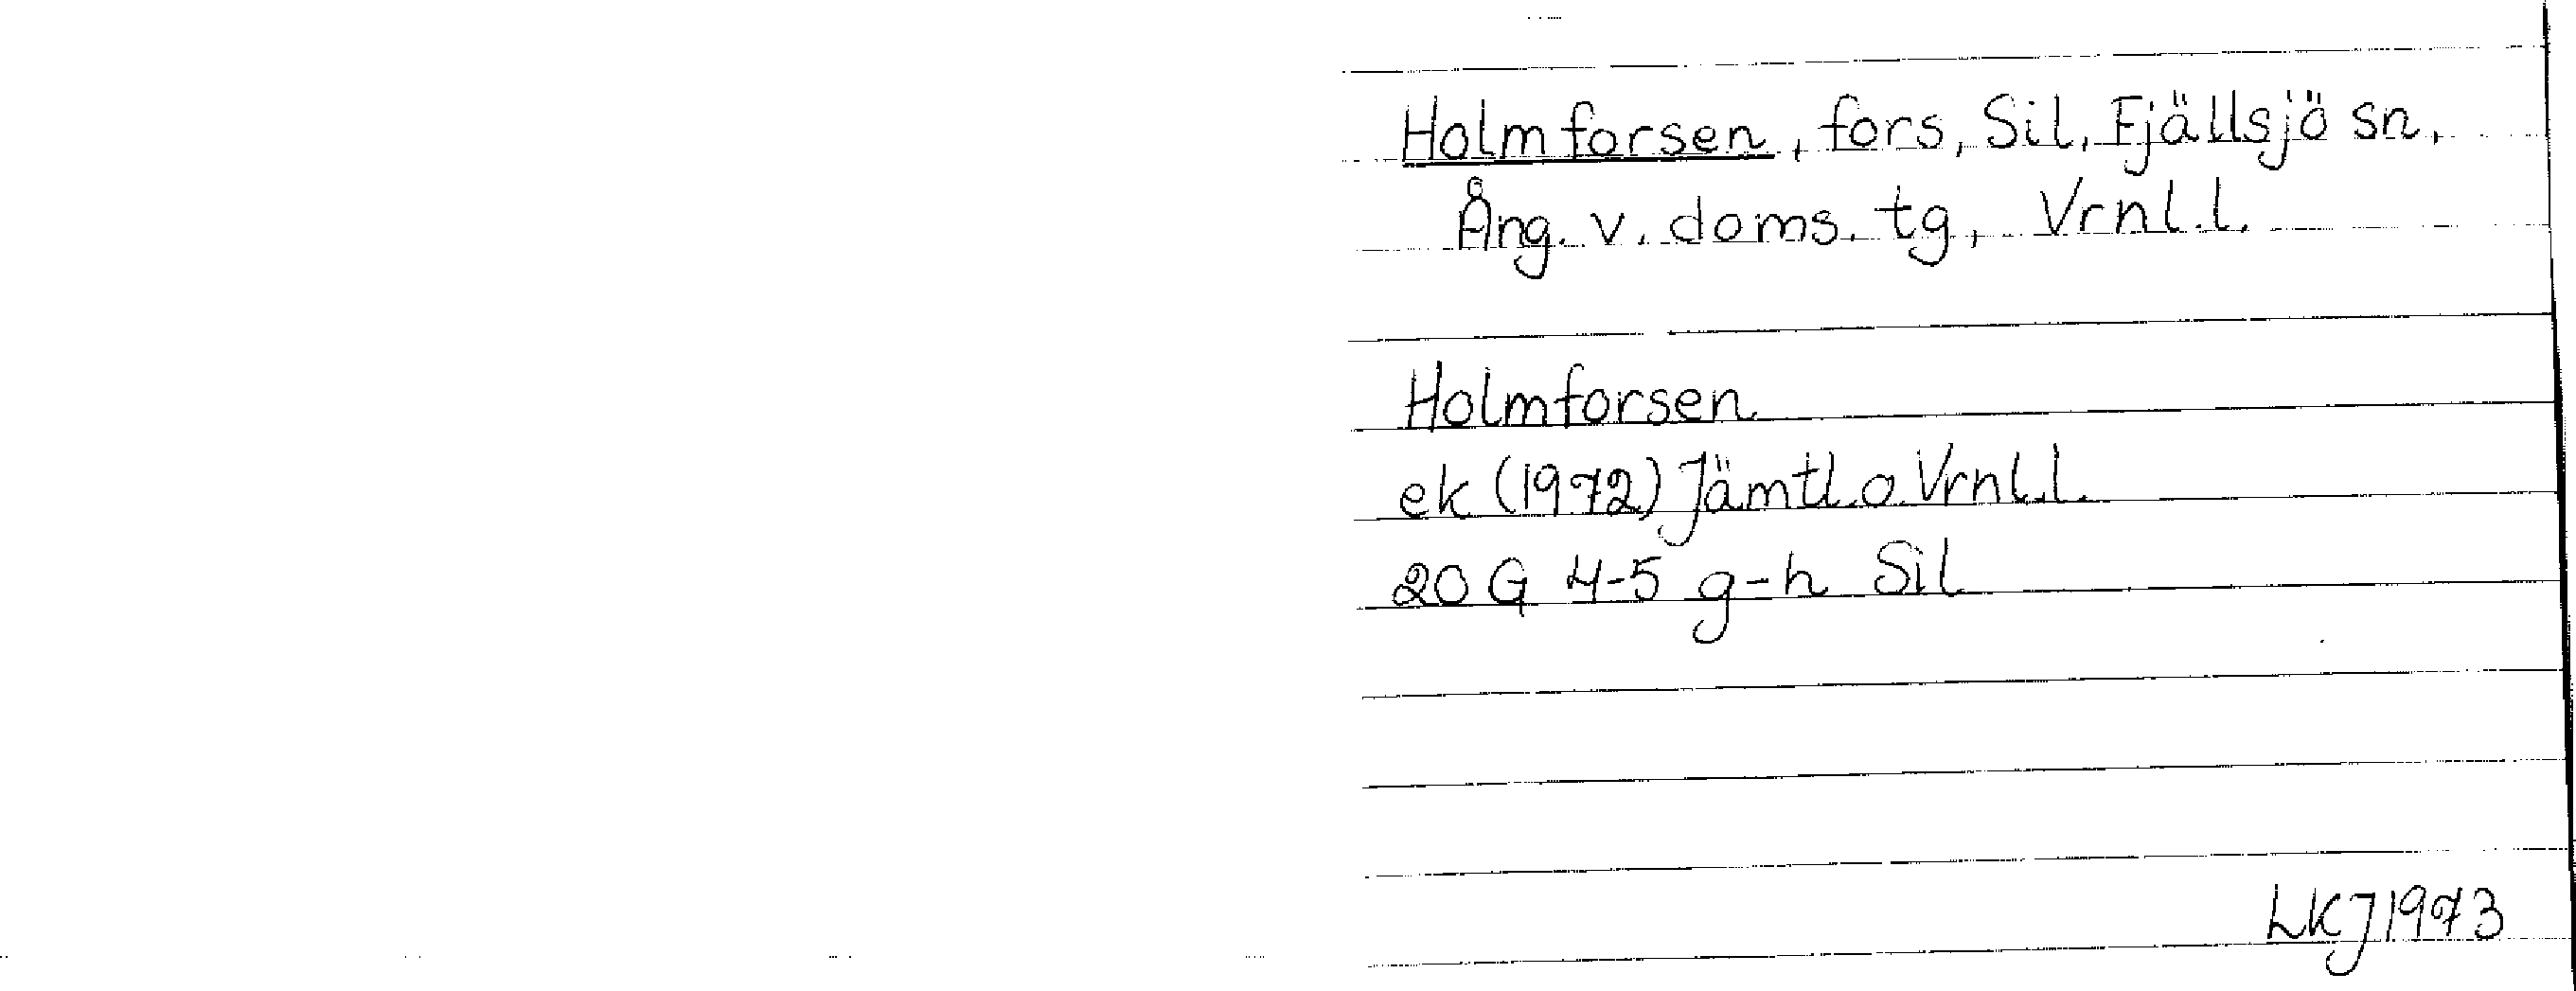 Holmforsen, fors, Sil, Fjällsjö sn,
Ång. v. doms. tg, Vrnl.l.
Holmforsen
ek (1972) Jämtl.o.Vrnl.l.
20 G 4-5 g-h Sil
LKJ 1973